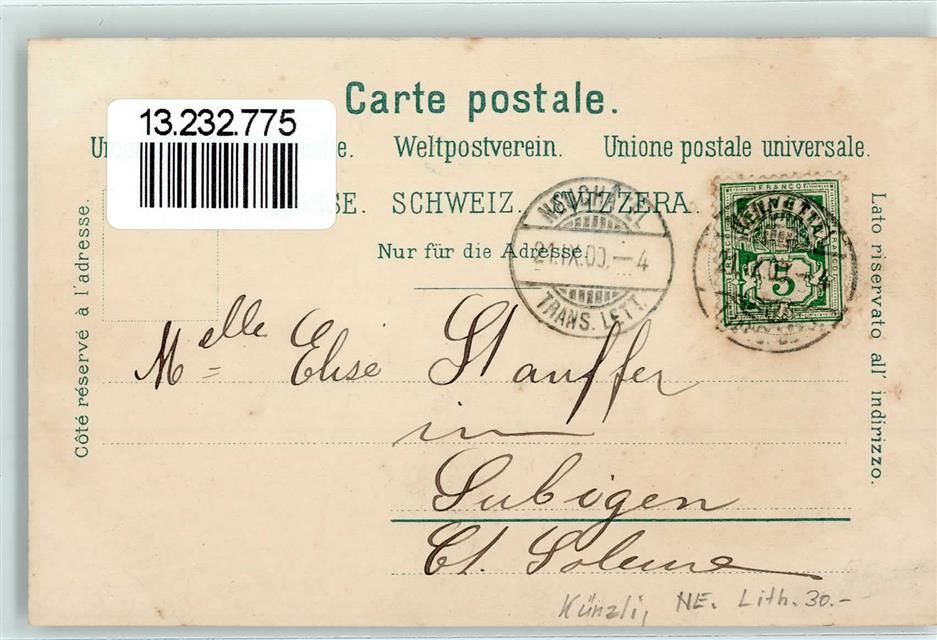 Carte postale.
13.232.775
Un e. Weltpostverein. Unione postale universale.
SE. SCHWEIZ. SVIZZERA.
Nur für die Adresse.
Côté réservé à l'adresse.
Lato riservato all' indirizzo.
21.IX.00.-4
TRANS. LETT.
FRANCO
HELVETIA
5
Melle Elise Stauffer
in
Subigen
Ct. Soleure
Künzli, NE. Lith. 30.-